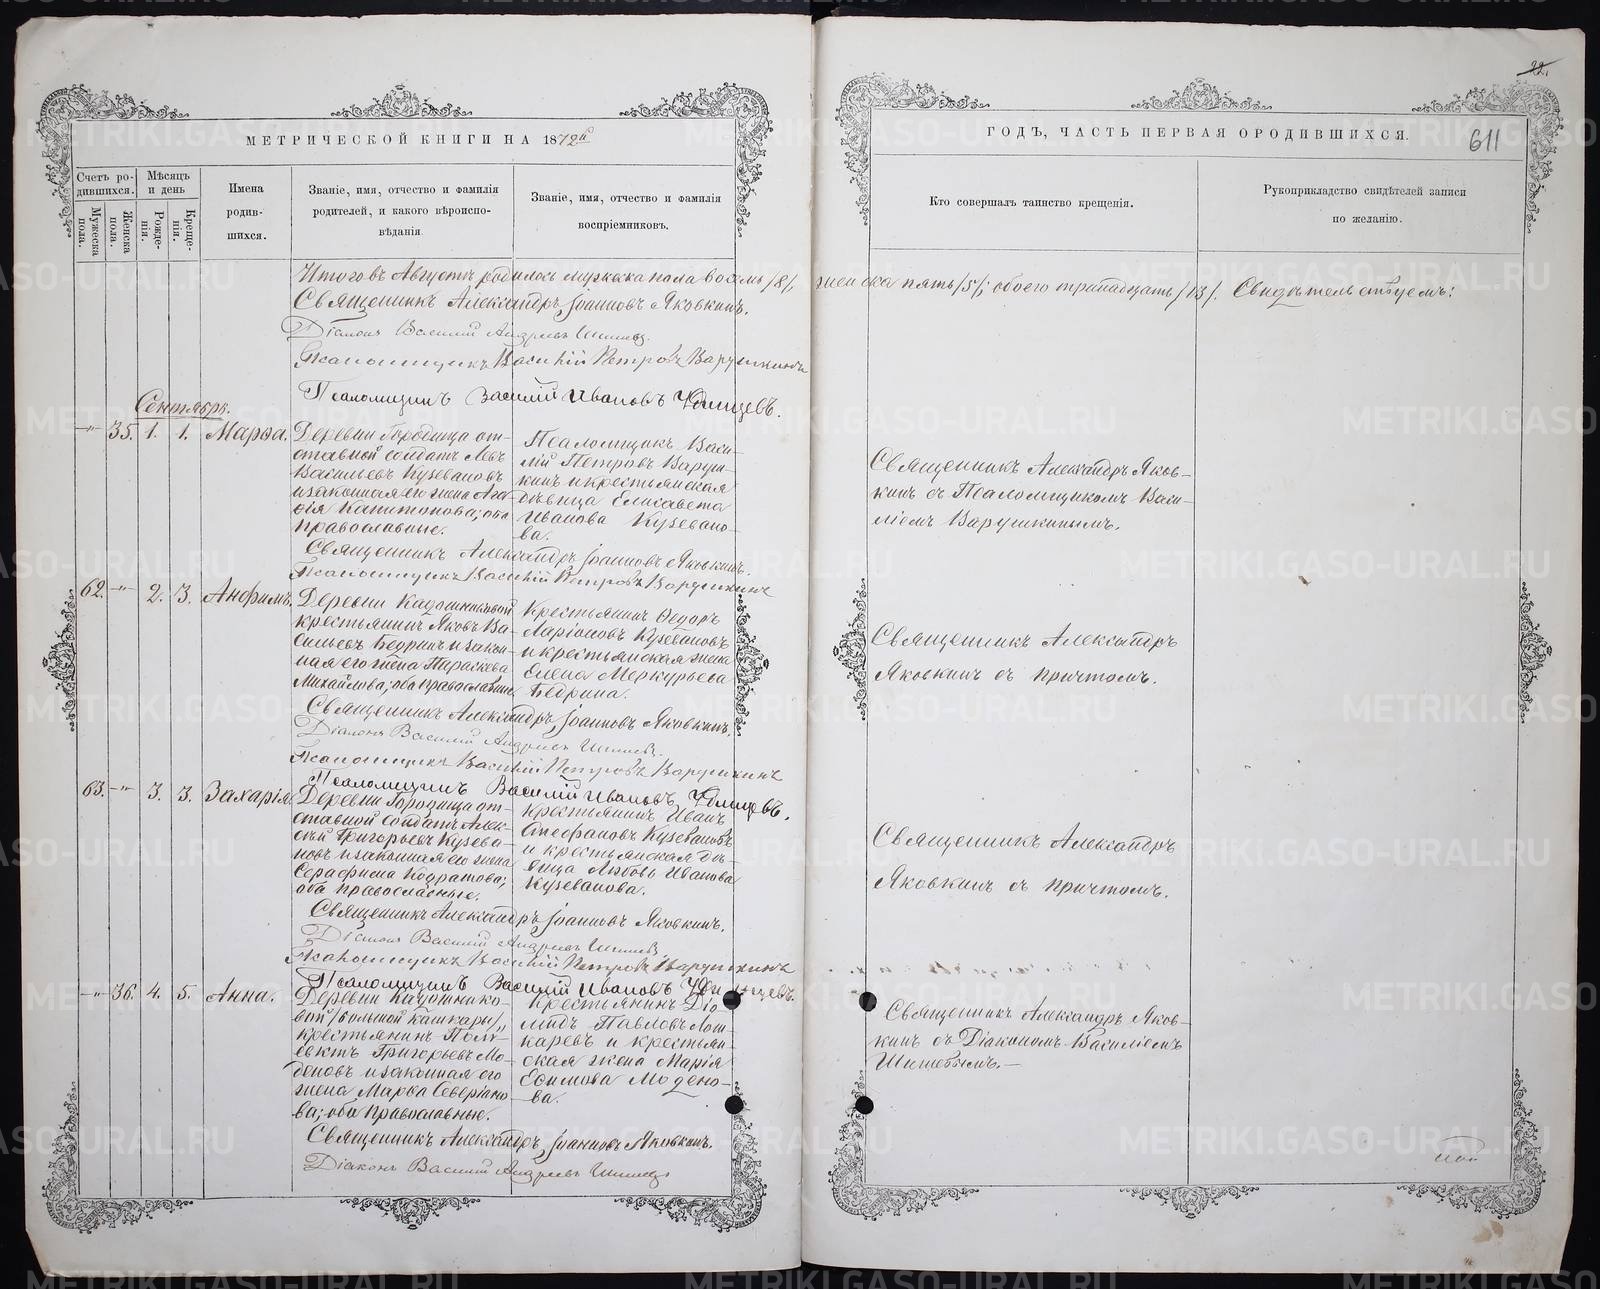 МЕТРИЧЕСКОЙ КНИГИ НА 1872й
ГОДЪ, ЧАСТЬ ПЕРВАЯ О РОДИВШИХСЯ.
22.
611
Счетъ ро-
дившихся.
Мужеска пола.
Женска пола.
Мѣсяцъ
и день
Рожде-
нія.
Креще-
нія.
Имена
родив-
шихся.
Званіе, имя, отчество и фамилія
родителей, и какого вѣроиспо-
вѣданія.
Званіе, имя, отчество и фамилія
воспріемниковъ.
Кто совершалъ таинство крещенія.
Рукоприкладство свидѣтелей записи
по желанію.
Итого въ Августѣ родилось мужеска пола восемь /8/, женска пять /5/; обоего тринадцать /13/. Свидѣтельствуемъ:
Священникъ Александръ Іоанновъ Яковкинъ.
Діаконъ Василий Андреевъ Шишевъ
Псаломщикъ Василій Петровъ Варушкинъ
Псаломщикъ Василій Ивановъ
Сентябрь.
-"- 35. 1. 1. Марѳа.
Деревни Городища от-
ставной солдатъ Левъ
Васильевъ Кузевановъ
и законная его жена Ага-
ѳія Капитонова; оба
православные.
Псаломщикъ Васи-
лій Петровъ Варуш-
кинъ и крестьянская
дѣвица Елисавета
Иванова Кузевано-
ва.
Священникъ Александръ Яков-
кинъ съ Псаломщикомъ Васи-
ліемъ Варушкинымъ.
Священникъ Александръ Іоанновъ Яковкинъ.
Псаломщикъ Василій Петровъ Варушкинъ
62. -"- 2. 3. Анфимъ.
Деревни Кадошниковой
крестьянинъ Яковъ Ва-
сильевъ Бедринъ и закон-
ная его жена Параскева
Михайлова; оба православные.
Крестьянинъ Ѳедоръ
Ларіоновъ Кузевановъ
и крестьянская жена
Елена Меркурьева
Бедрина.
Священникъ Александръ
Яковкинъ съ причтомъ.
Священникъ Александръ Іоанновъ Яковкинъ.
Діаконъ Василий Андреевъ Шишевъ.
Псаломщикъ Василій Петровъ Варушкинъ
Псаломщикъ Василій Ивановъ
63. -"- 3. 3. Захарія.
Деревни Городища от-
ставной солдатъ Алек-
сѣй Григорьевъ Кузева-
новъ и законная его жена
Серафима Кодратова;
оба православные.
Крестьянинъ Иванъ
Стефановъ Кузевановъ
и крестьянская дѣ-
вица Любовь Иванова
Кузеванова.
Священникъ Александръ
Яковкинъ съ причтомъ.
Священникъ Александръ Іоанновъ Яковкинъ.
Діаконъ Василий Андреевъ Шишевъ
Псаломщикъ Василій Петровъ Варушкинъ
Псаломщикъ Василій Ивановъ
-"- 36. 4. 5. Анна.
Деревни Кадошнико-
вой /большой Кашкары/,
крестьянинъ Полу-
евктъ Григорьевъ Мо-
деновъ и законная его
жена Марѳа Северіано-
ва; оба православные.
Крестьянинъ Діо-
мидъ Павловъ Лош-
каревъ и крестьян-
ская жена Марія
Ефимова Модено-
ва.
Священникъ Александръ Яков-
кинъ съ Діакономъ Василіемъ
Шишевымъ.—
Священникъ Александръ Іоанновъ Яковкинъ.
Діаконъ Василий Андреевъ Шишевъ